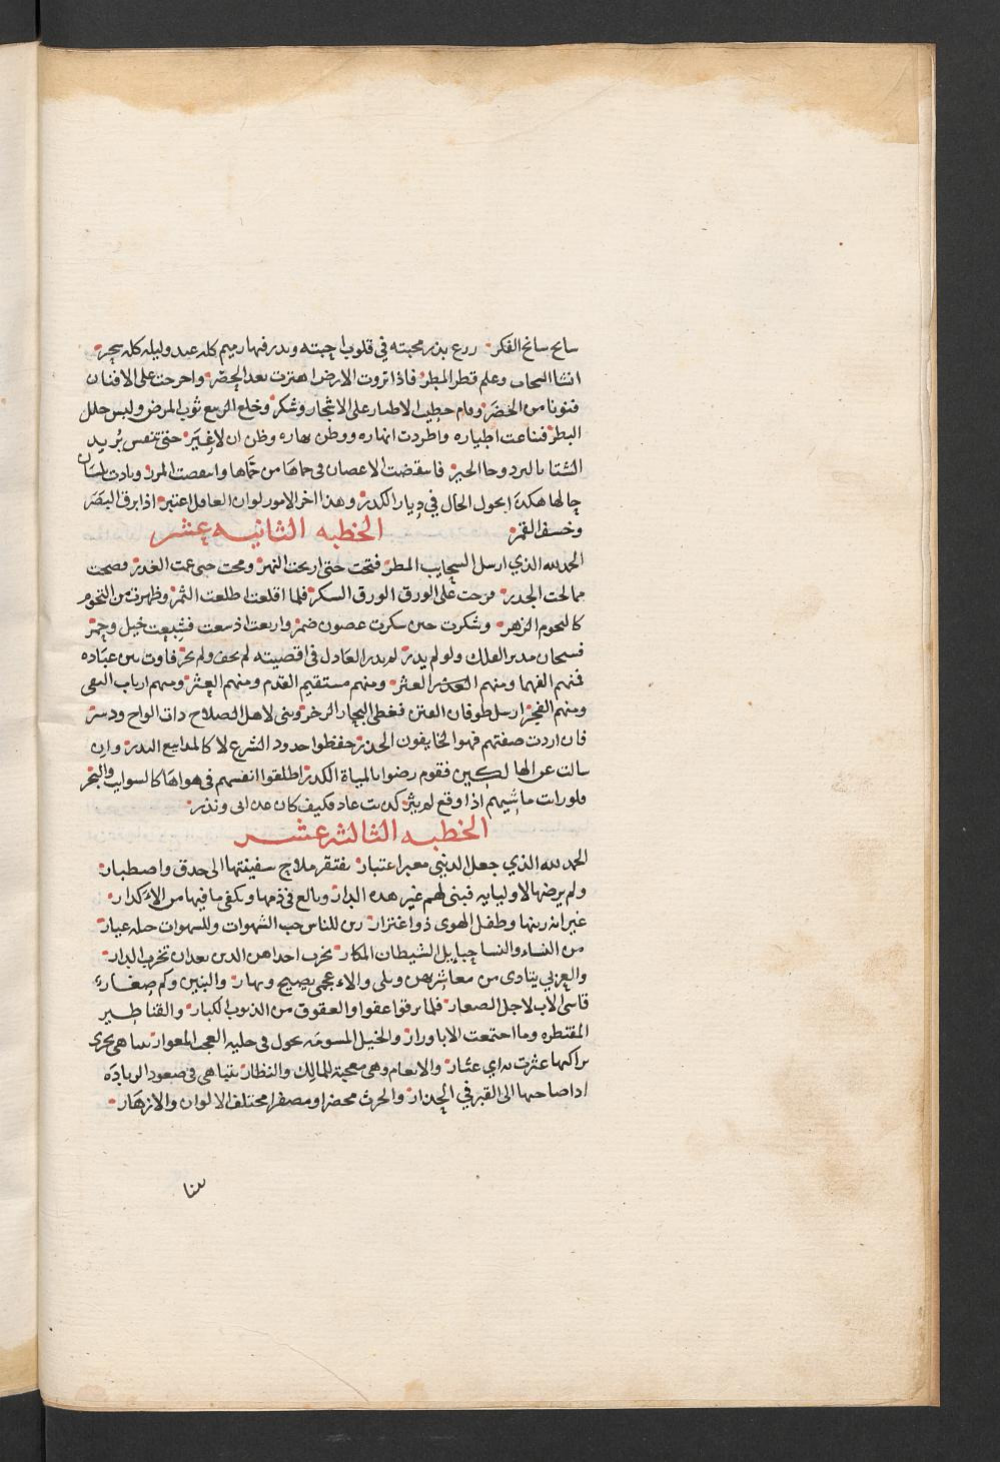 سابح سانح الفكر زرع بذر محبته في قلوب احبته وبدر فنهارميم كله عيد وليله كله سحر
انشا السحاب وعلم قطر المطر فاذا تروت الارض اهتزت بعد الخضر واخرجت على الافنان
فنونا من الخضر وقام خطيب الاطيار على الاشجار وشكر وخلع الربيع ثوب المرض ولبس حلل
البطر فناعت اطياره واطردت انهاره ووطن بهاره وظن ان لا غير حتى تنفس بُريد
الشتا بالبرد وجا الخبر فانتقضت الاعصان في حماها من حماها وانتقضت المرر ونادت لسان
حالها هكذا يحول الحال في ديار الكدر وهذا اخر الامور لو ان العاقل اعتبر اذا برق البصر
وخسف القمر
الخطبه الثانيه عشر
الحمد لله الذي ارسل السحايب المطر فتحت حتى اربحت النهر ومحت حتى عمت الغدر وصحت
ممالحت الجدر مرحت على الورق الورق السكر فلما اقلعت اطلعت الثمر وظهرت من النجوم
كالنجوم الزهر وشكرت حين سكرت غصون ضمر واربعت اذ سعت فشبعت خيل وحمر
فسبحان مدبر الفلك ولو لم يدبر لم يدر العادل في اقضيته لم يحف ولم يجر فاوت بين عباده
فمنهم الفهما ومنهم الغدر العثر ومنهم مستقيم القدم ومنهم العثر ومنهم ارباب التقى
ومنهم الفجر ارسل طوفان الفتن فغطى البحار الزخر وبنى لاهل الصلاح ذات الواح ودسر
فان اردت صفتهم فهوا الخايفون الحذر حفظوا حدود الشرع لا كالمذاييع البدر وان
سالت عن الهالكين فقوم رضوا بالمياة الكدر اطلقوا انفسهم في هواها كالسوايب والبحر
فلو رات ماشيهم اذا وقع لم يثر كذبت عاد فكيف كان عذابي ونذر
الخطبه الثالثه عشر
الحمد لله الذي جعل الدنيى معبر اعتبار يفتقر ملاح سفينتها الى حدق واصطبار
ولم يرضها لاوليايه فبنى لهم غير هذه الدار وبالغ في ذمها ويكفي ما فيها من الاكدار
غير انه زينها وطفل الهوى ذو اغترار زين للناس حب الشهوات وللشهوات حله عيار
من النساء والنسا حبايل الشيطان المكار يخرب احداهن الدين بعد ان تخرب الدار
والعزبي يتادى من معاشرتهن وبلى والاء عجمى يصيح ونهار والبنين وكم صغار
قاسى الاب لاجل الصغار فلما ترقوا عقوا والعقوق من الذنوب الكبار والقناطير
المقنطره وما اجتمعت الا باوزار والخيل المسومه تجول في حلبه العجب المعوار بينا هي تجري
براكبها عثرت به اي عثار والانعام وهي معجبة للمالك والنظار بينا هي في صعود الزياده
اذا صاحبها الى القبر في انحدار والحرث مخضرا ومصفرا مختلف الالوان والازهار
بينا